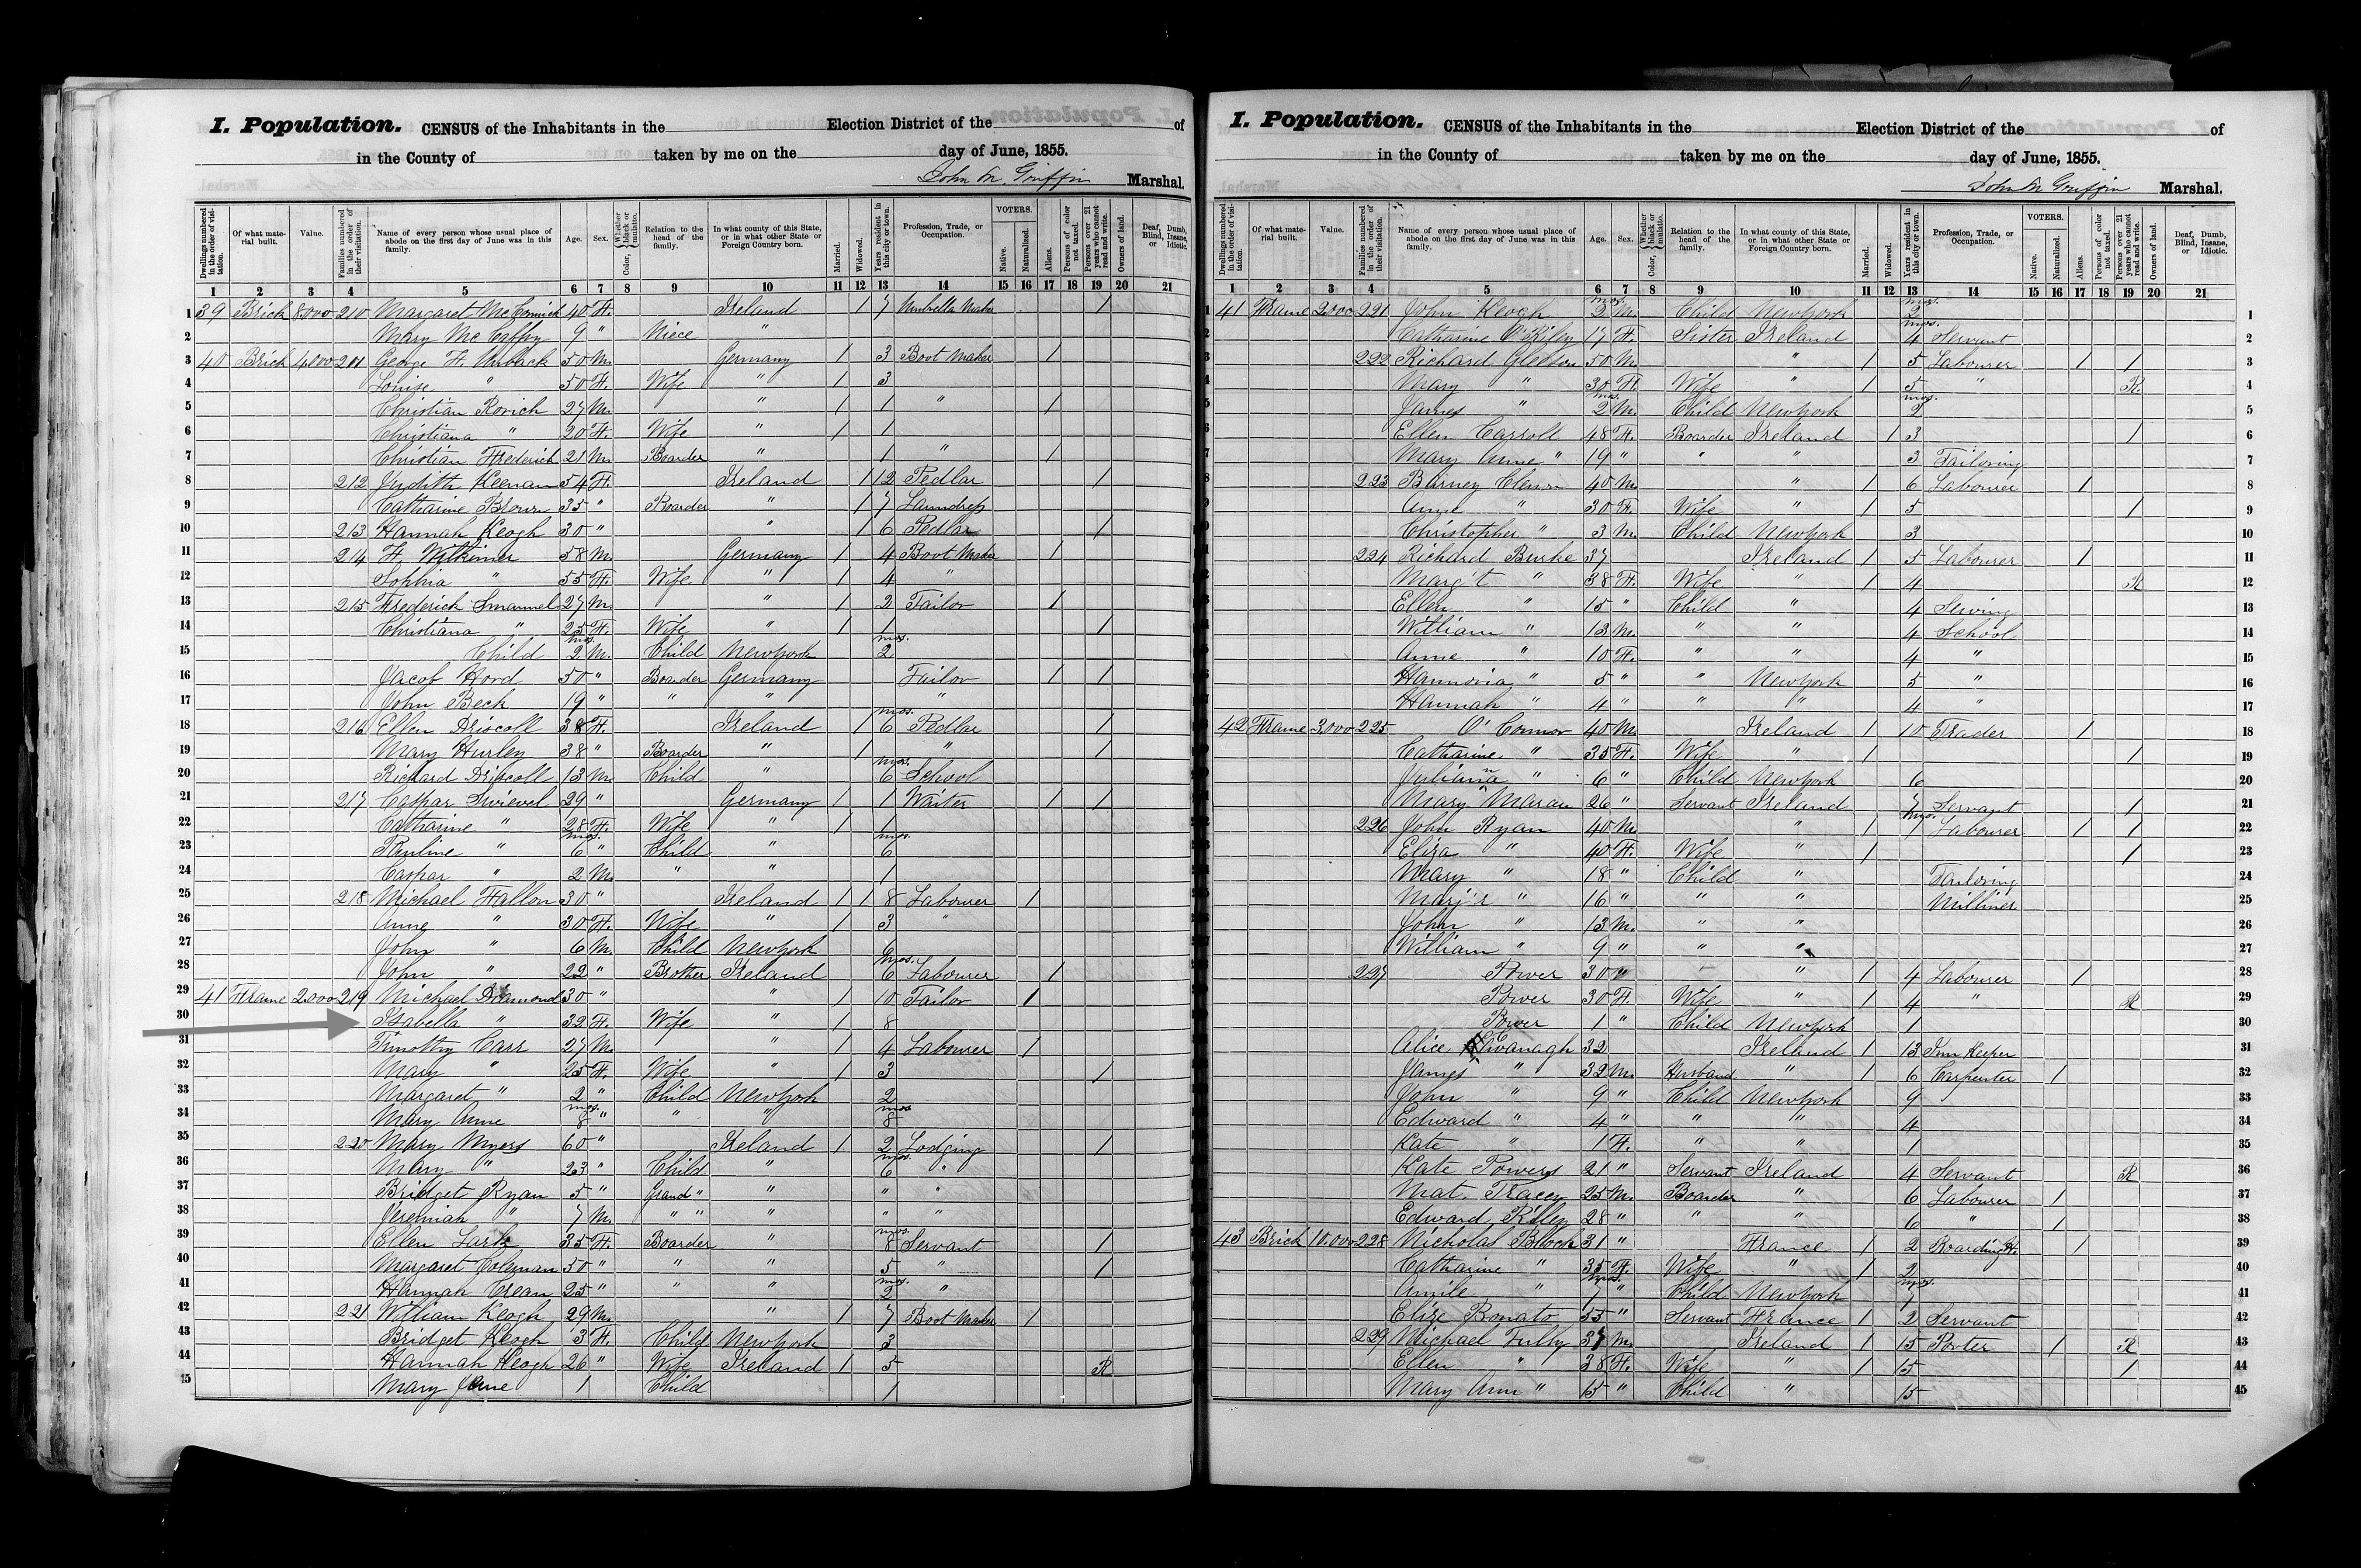 I. Population. CENSUS of the Inhabitants in the Election District of the of
in the County of taken by me on the day of June, 1855.
John M. Griffin Marshal.
Dwellings numbered in the order of visitation. Of what material built. Value. Families numbered in the order of their visitation. Name of every person whose usual place of abode on the first day of June was in this family. Age. Sex. Color, Whether black or mulatto. Relation to the head of the family. In what county of this State, or in what other State or Foreign Country born. Married. Widowed. Years resident in this city or town. Profession, Trade, or Occupation. VOTERS. Native. Naturalized. Aliens. Persons of color not taxed. Persons over 21 years who cannot read and write. Owners of land. Deaf, Dumb, Blind, Insane, or Idiotic.
1 2 3 4 5 6 7 8 9 10 11 12 13 14 15 16 17 18 19 20 21
1 39 Brick 8.000 210 Margaret McCormick 40 F. Ireland 1 7 Umbrella Maker 1
2 Mary McCaffry 9 " Niece "
3 40 Brick 4.000 211 George F. 50 M. Germany 1 3 Boot Maker 1
4 Louise " 50 F. Wife " 1 3
5 Christian Rorich 27 M. " 1 1 " 1
6 Christiana " 20 F. Wife " 1 1
7 Christian Frederich 21 M. Boarder " 1 " 1
8 212 Judith Keenan 54 F. Ireland 1 12 Pedlar 1
9 Catharine Brown 35 " Boarder " 1 7 Laundress
10 213 Hannah Keogh 30 " " 1 6 Pedlar 1
11 214 F. 58 M. Germany 1 4 Boot Maker 1
12 Sophia " 55 F. Wife " 1 4 "
13 215 Frederich 27 M. " 1 2 Tailor 1
14 Christiana " 25 F. Wife " 1 1 1
15 Child 2 mos. M. Child New York 2 mos.
16 Jacob Hord 50 " Boarder Germany Tailor 1 1
17 John Beck 19 " " " "
18 216 Ellen Driscoll 38 F. Ireland 1 6 mos. Pedlar 1
19 Mary Hurley 38 " Boarder " 1 " 1
20 Richard Driscoll 13 M. Child " 6 mos. School
21 217 Caspar 29 " Germany 1 1 Waiter 1 1
22 Catharine " 28 F. Wife " 1 1
23 Pauline " 6 mos. " Child " 6 mos.
24 Caspar " 2 M. " " 1
25 218 Michael Fallon 30 " Ireland 1 1 8 Labourer 1
26 Anne " 30 F. Wife " 1 3
27 John " 6 M. Child New York 6
28 John " 22 " Brother Ireland 6 mos. Labourer 1
29 41 Frame 2.000 219 Michael Diamond 30 " " 1 10 Tailor 1
30 Isabella " 32 F. Wife " 1 8
31 Timothy Carr 27 M. " 1 4 Labourer 1
32 Mary " 25 F. Wife " 1 3 1
33 Margaret " 2 " Child New York 2
34 Mary Anne 8 mos. " " " 8 mos
35 220 Mary Myers 60 " Ireland 1 2 Lodging 1
36 Mary " 23 " Child " 6 mos. "
37 Bridget Ryan 5 " Grand " " " "
38 Jeremiah " 7 M. " " " " "
39 Ellen 35 F. Boarder " 8 mos. Servant 1
40 Margaret Coleman 50 " " " 5 " 1
41 Hannah Crean 25 " " " 2 mos. "
42 221 William Keogh 29 M. " 1 7 Boot Maker 1
43 Bridget Keogh 3 F. Child New York 3
44 Hannah Keogh 26 " Wife Ireland 1 5 R
45 Mary Jane 1 Child 1
I. Population. CENSUS of the Inhabitants in the Election District of the of
in the County of taken by me on the day of June, 1855.
John M Griffin Marshal.
Dwellings numbered in the order of visitation. Of what material built. Value. Families numbered in the order of their visitation. Name of every person whose usual place of abode on the first day of June was in this family. Age. Sex. Color, Whether black or mulatto. Relation to the head of the family. In what county of this State, or in what other State or Foreign Country born. Married. Widowed. Years resident in this city or town. Profession, Trade, or Occupation. VOTERS. Native. Naturalized. Aliens. Persons of color not taxed. Persons over 21 years who cannot read and write. Owners of land. Deaf, Dumb, Blind, Insane, or Idiotic.
1 2 3 4 5 6 7 8 9 10 11 12 13 14 15 16 17 18 19 20 21
1 41 Frame 2.000 221 John Keogh 2 mos. M. Child New York 2 mos. 1
2 Catharine O'Riley 17 F. Sister Ireland 4 mos. Servant 2
3 222 Richard Gleeson 50 M. " 1 5 Labourer 1 1 3
4 Mary " 30 F. Wife " 1 5 " R. 4
5 James " 2 mos. M. Child New York 2 mos. 5
6 Ellen Carroll 48 F. Boarder Ireland 1 3 1 6
7 Mary Anne " 19 " " " 3 Tailoring 7
8 223 Barney 40 M. " 1 6 Labourer 1 8
9 Anne " 30 F. Wife " 1 5 1 9
10 Christopher " 3 M. Child New York 3 10
11 224 Richard Burke 37 Ireland 1 5 Labourer 1 11
12 Marg't " 38 F. Wife " 1 4 R 12
13 Ellen " 15 " Child " 4 Sewing 13
14 William " 13 M. " " 4 School 14
15 Anne " 10 F. " " 4 " 15
16 " 5 " " New York 5 " 16
17 Hannah " 4 " " " 4 " 17
18 42 Frame 3.000 225 O'Connor 40 M. Ireland 1 10 Trader 1 18
19 Catharine " 35 F. Wife " 1 1 19
20 Juliana " 6 " Child New York 6 20
21 Mary Maran 26 " Servant Ireland 7 Servant 1 21
22 226 John Ryan 40 M. " 1 7 mos. Labourer 1 1 22
23 Eliza " 40 F. Wife " 1 1 23
24 Mary " 18 " Child " Tailoring 24
25 Marg't " 16 " " " Milliner 25
26 John " 13 M. " " 26
27 William " 9 " " " 27
28 227 Power 30 " " 1 4 Labourer 1 28
29 Power 30 F. Wife " 1 4 " R 29
30 Power 1 " Child New York 1 30
31 Alice Kavanagh 32 Ireland 1 13 Inn Keeper 31
32 James " 32 M. Husband " 1 6 Carpenter 1 32
33 John " 9 " Child New York 9 33
34 Edward " 4 " " " 4 34
35 Kate " 1 F. " " 1 35
36 Kate Powers 21 " Servant Ireland 4 Servant R 36
37 Mat. Tracey 25 M. Boarder " 6 Labourer 1 37
38 Edward Rilley 28 " " " 6 " 1 38
39 43 Brick 10.000 228 Nicholas Block 31 " France 1 2 Boarding H. 1 39
40 Catharine " 35 F. Wife " 1 2 40
41 Amile " 7 mos. " Child New York 7 mos. 41
42 Elize Bonato 55 " Servant France 1 2 Servant 42
43 229 Michael 37 M. Ireland 1 15 Porter 1 R 43
44 Ellen " 38 F. Wife " 1 15 1 44
45 Mary Ann " 15 " Child " 15 45